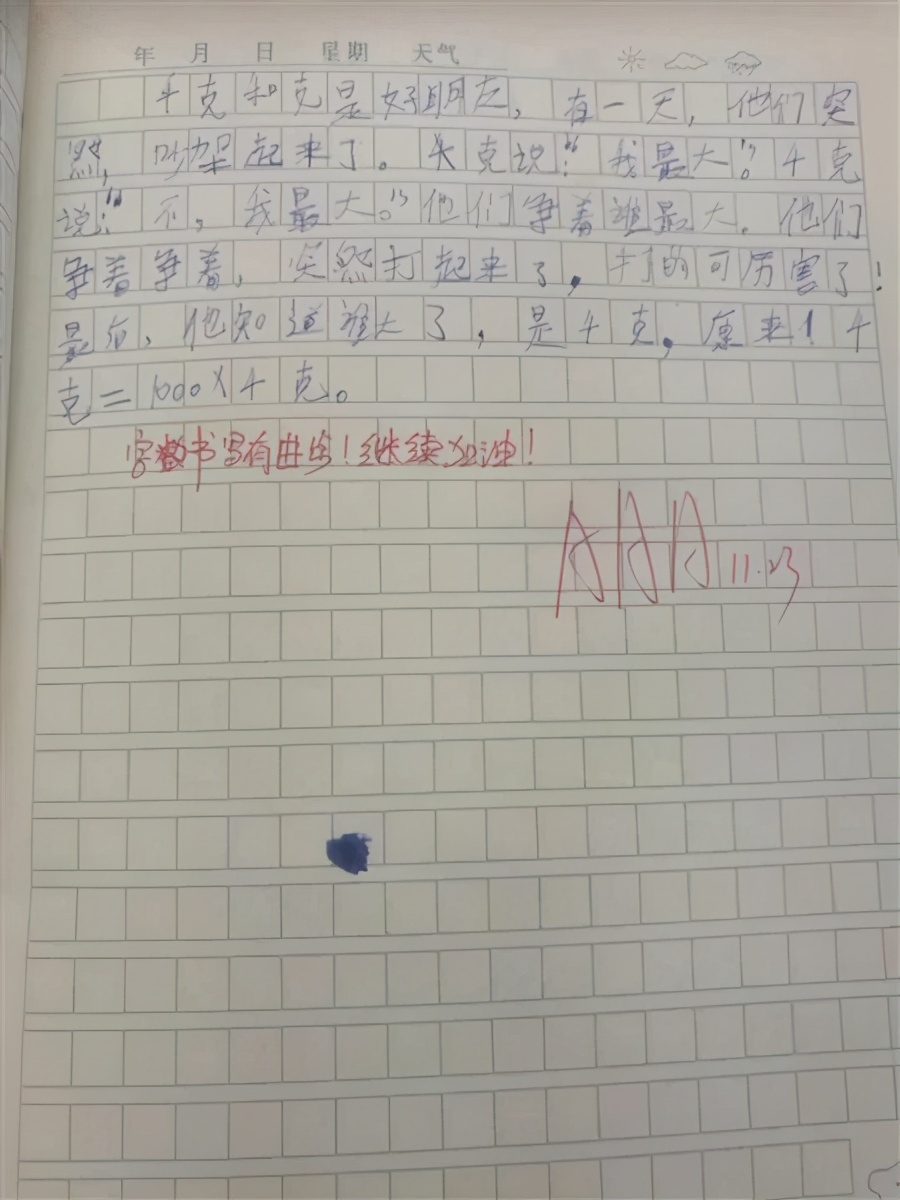 年 月 日 星期 天气
千克和克是好朋友，有一天，他们突
然，吵架起来了。克说：“我最大”。千克
说：“不，我最大。”他们争着谁最大。他们
争着争着，突然打起来了，打的可厉害了！
最后，他知道谁大了，是千克，原来1千
克＝1000×千克。
字数书写有进步！继续加油！
AAA 11.23